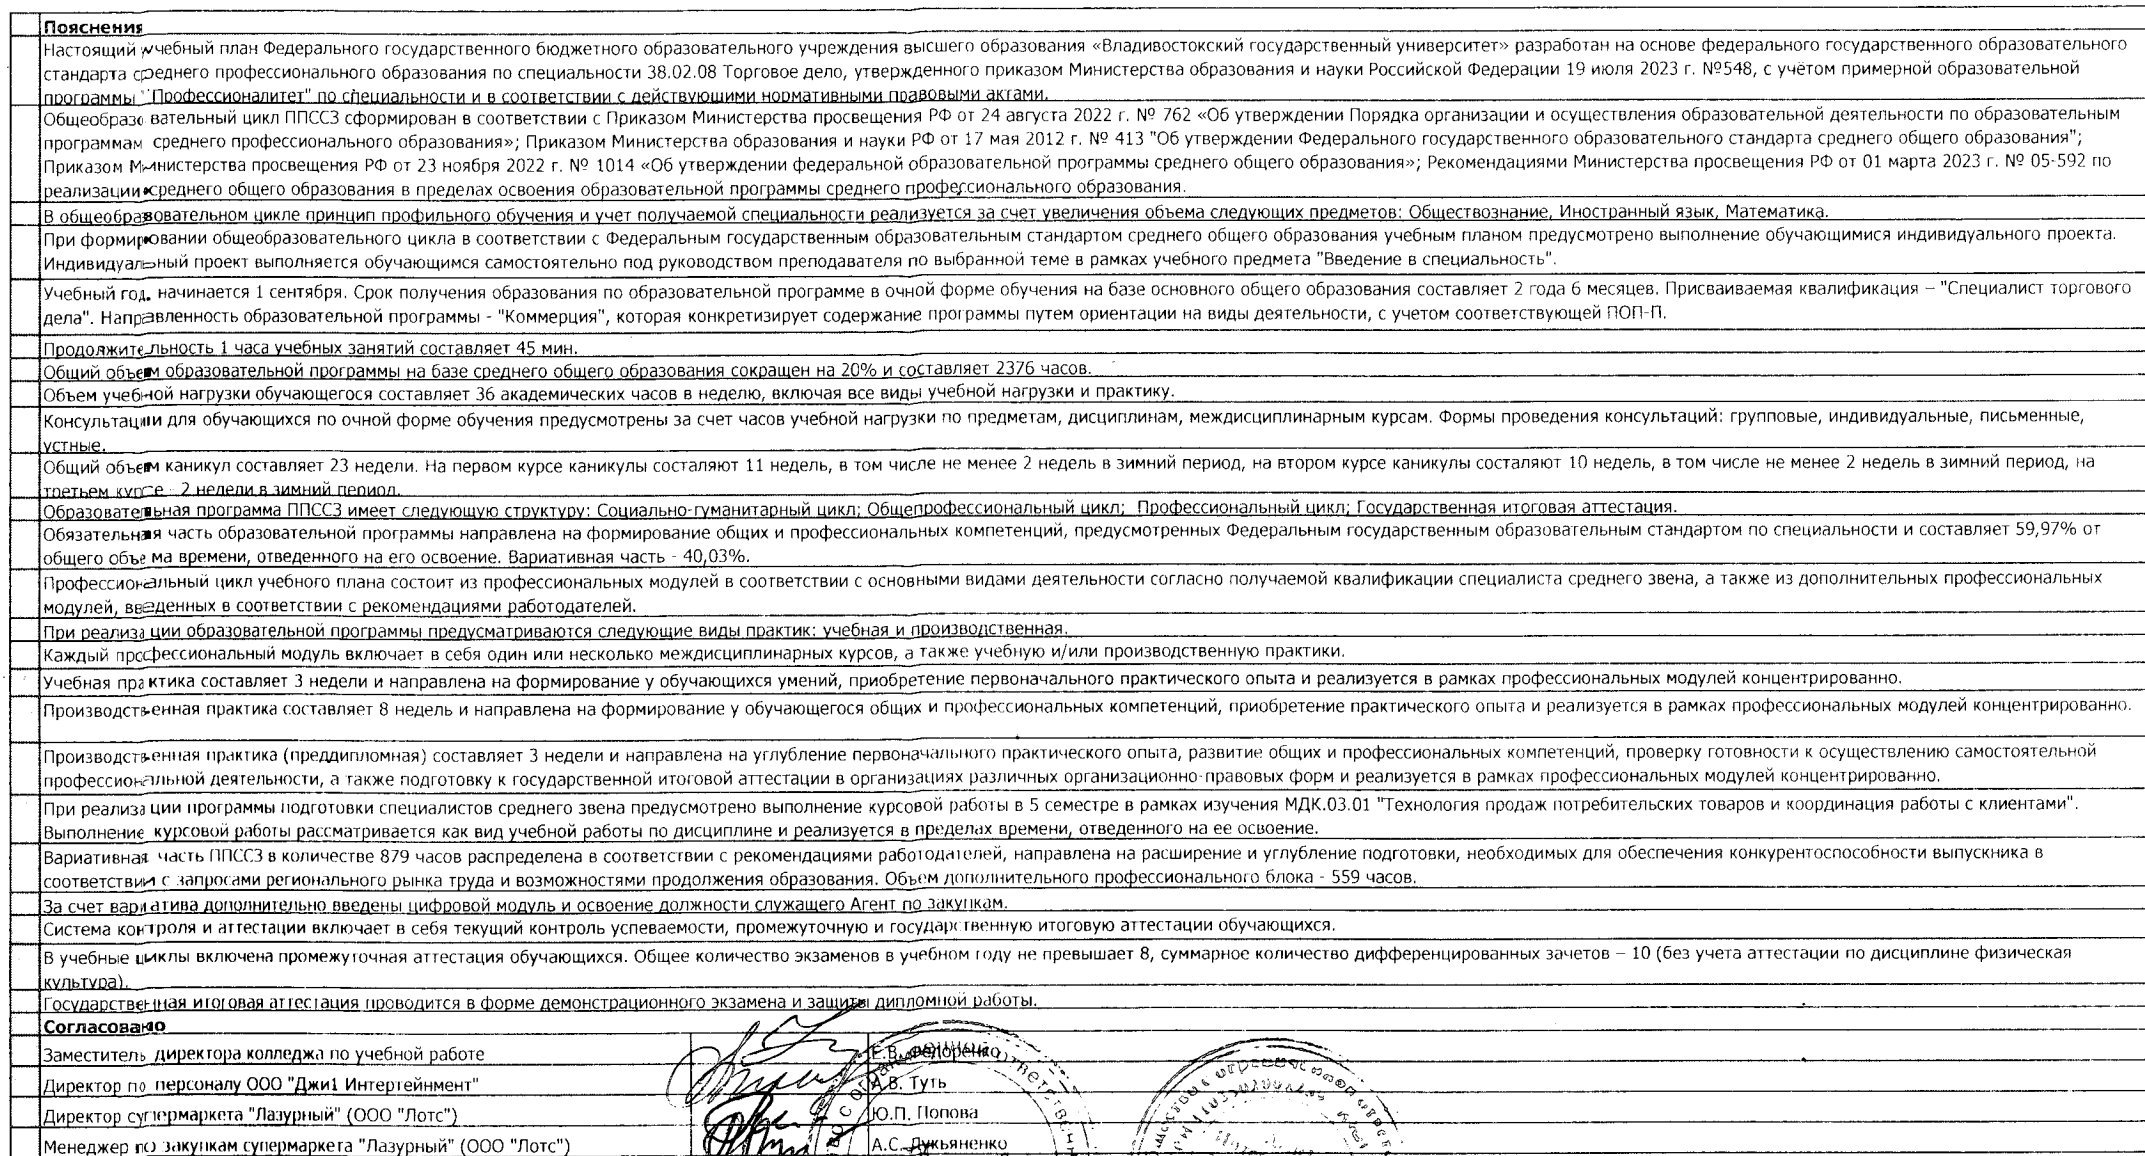 Пояснения
Настоящий учебный план Федерального государственного бюджетного образовательного учреждения высшего образования «Владивостокский государственный университет» разработан на основе федерального государственного образовательного
стандарта среднего профессионального образования по специальности 38.02.08 Торговое дело, утвержденного приказом Министерства образования и науки Российской Федерации 19 июля 2023 г. №548, с учётом примерной образовательной
программы "Профессионалитет" по специальности и в соответствии с действующими нормативными правовыми актами.
Общеобразовательный цикл ППССЗ сформирован в соответствии с Приказом Министерства просвещения РФ от 24 августа 2022 г. № 762 «Об утверждении Порядка организации и осуществления образовательной деятельности по образовательным
программам среднего профессионального образования»; Приказом Министерства образования и науки РФ от 17 мая 2012 г. № 413 "Об утверждении Федерального государственного образовательного стандарта среднего общего образования";
Приказом Министерства просвещения РФ от 23 ноября 2022 г. № 1014 «Об утверждении федеральной образовательной программы среднего общего образования»; Рекомендациями Министерства просвещения РФ от 01 марта 2023 г. № 05-592 по
реализации среднего общего образования в пределах освоения образовательной программы среднего профессионального образования.
В общеобразовательном цикле принцип профильного обучения и учет получаемой специальности реализуется за счет увеличения объема следующих предметов: Обществознание, Иностранный язык, Математика.
При формировании общеобразовательного цикла в соответствии с Федеральным государственным образовательным стандартом среднего общего образования учебным планом предусмотрено выполнение обучающимися индивидуального проекта.
Индивидуальный проект выполняется обучающимся самостоятельно под руководством преподавателя по выбранной теме в рамках учебного предмета "Введение в специальность".
Учебный год начинается 1 сентября. Срок получения образования по образовательной программе в очной форме обучения на базе основного общего образования составляет 2 года 6 месяцев. Присваиваемая квалификация – "Специалист торгового
дела". Направленность образовательной программы - "Коммерция", которая конкретизирует содержание программы путем ориентации на виды деятельности, с учетом соответствующей ПОП-П.
Продолжительность 1 часа учебных занятий составляет 45 мин.
Общий объем образовательной программы на базе среднего общего образования сокращен на 20% и составляет 2376 часов.
Объем учебной нагрузки обучающегося составляет 36 академических часов в неделю, включая все виды учебной нагрузки и практику.
Консультации для обучающихся по очной форме обучения предусмотрены за счет часов учебной нагрузки по предметам, дисциплинам, междисциплинарным курсам. Формы проведения консультаций: групповые, индивидуальные, письменные,
устные.
Общий объем каникул составляет 23 недели. На первом курсе каникулы состаляют 11 недель, в том числе не менее 2 недель в зимний период, на втором курсе каникулы состаляют 10 недель, в том числе не менее 2 недель в зимний период, на
третьем курсе - 2 недели в зимний период.
Образовательная программа ППССЗ имеет следующую структуру: Социально-гуманитарный цикл; Общепрофессиональный цикл; Профессиональный цикл; Государственная итоговая аттестация.
Обязательная часть образовательной программы направлена на формирование общих и профессиональных компетенций, предусмотренных Федеральным государственным образовательным стандартом по специальности и составляет 59,97% от
общего объема времени, отведенного на его освоение. Вариативная часть - 40,03%.
Профессиональный цикл учебного плана состоит из профессиональных модулей в соответствии с основными видами деятельности согласно получаемой квалификации специалиста среднего звена, а также из дополнительных профессиональных
модулей, введенных в соответствии с рекомендациями работодателей.
При реализации образовательной программы предусматриваются следующие виды практик: учебная и производственная.
Каждый профессиональный модуль включает в себя один или несколько междисциплинарных курсов, а также учебную и/или производственную практики.
Учебная практика составляет 3 недели и направлена на формирование у обучающихся умений, приобретение первоначального практического опыта и реализуется в рамках профессиональных модулей концентрированно.
Производственная практика составляет 8 недель и направлена на формирование у обучающегося общих и профессиональных компетенций, приобретение практического опыта и реализуется в рамках профессиональных модулей концентрированно.
Производственная практика (преддипломная) составляет 3 недели и направлена на углубление первоначального практического опыта, развитие общих и профессиональных компетенций, проверку готовности к осуществлению самостоятельной
профессиональной деятельности, а также подготовку к государственной итоговой аттестации в организациях различных организационно-правовых форм и реализуется в рамках профессиональных модулей концентрированно.
При реализации программы подготовки специалистов среднего звена предусмотрено выполнение курсовой работы в 5 семестре в рамках изучения МДК.03.01 "Технология продаж потребительских товаров и координация работы с клиентами".
Выполнение курсовой работы рассматривается как вид учебной работы по дисциплине и реализуется в пределах времени, отведенного на ее освоение.
Вариативная часть ППССЗ в количестве 879 часов распределена в соответствии с рекомендациями работодателей, направлена на расширение и углубление подготовки, необходимых для обеспечения конкурентоспособности выпускника в
соответствии с запросами регионального рынка труда и возможностями продолжения образования. Объем дополнительного профессионального блока - 559 часов.
За счет вариатива дополнительно введены цифровой модуль и освоение должности служащего Агент по закупкам.
Система контроля и аттестации включает в себя текущий контроль успеваемости, промежуточную и государственную итоговую аттестации обучающихся.
В учебные циклы включена промежуточная аттестация обучающихся. Общее количество экзаменов в учебном году не превышает 8, суммарное количество дифференцированных зачетов – 10 (без учета аттестации по дисциплине физическая
культура).
Государственная итоговая аттестация проводится в форме демонстрационного экзамена и защиты дипломной работы.
Согласовано
Заместитель директора колледжа по учебной работе Е.В. Федоренко
Директор по персоналу ООО "Джи1 Интертейнмент" А.В. Туть
Директор супермаркета "Лазурный" (ООО "Лотс") Ю.П. Попова
Менеджер по закупкам супермаркета "Лазурный" (ООО "Лотс") А.С. Лукьяненко